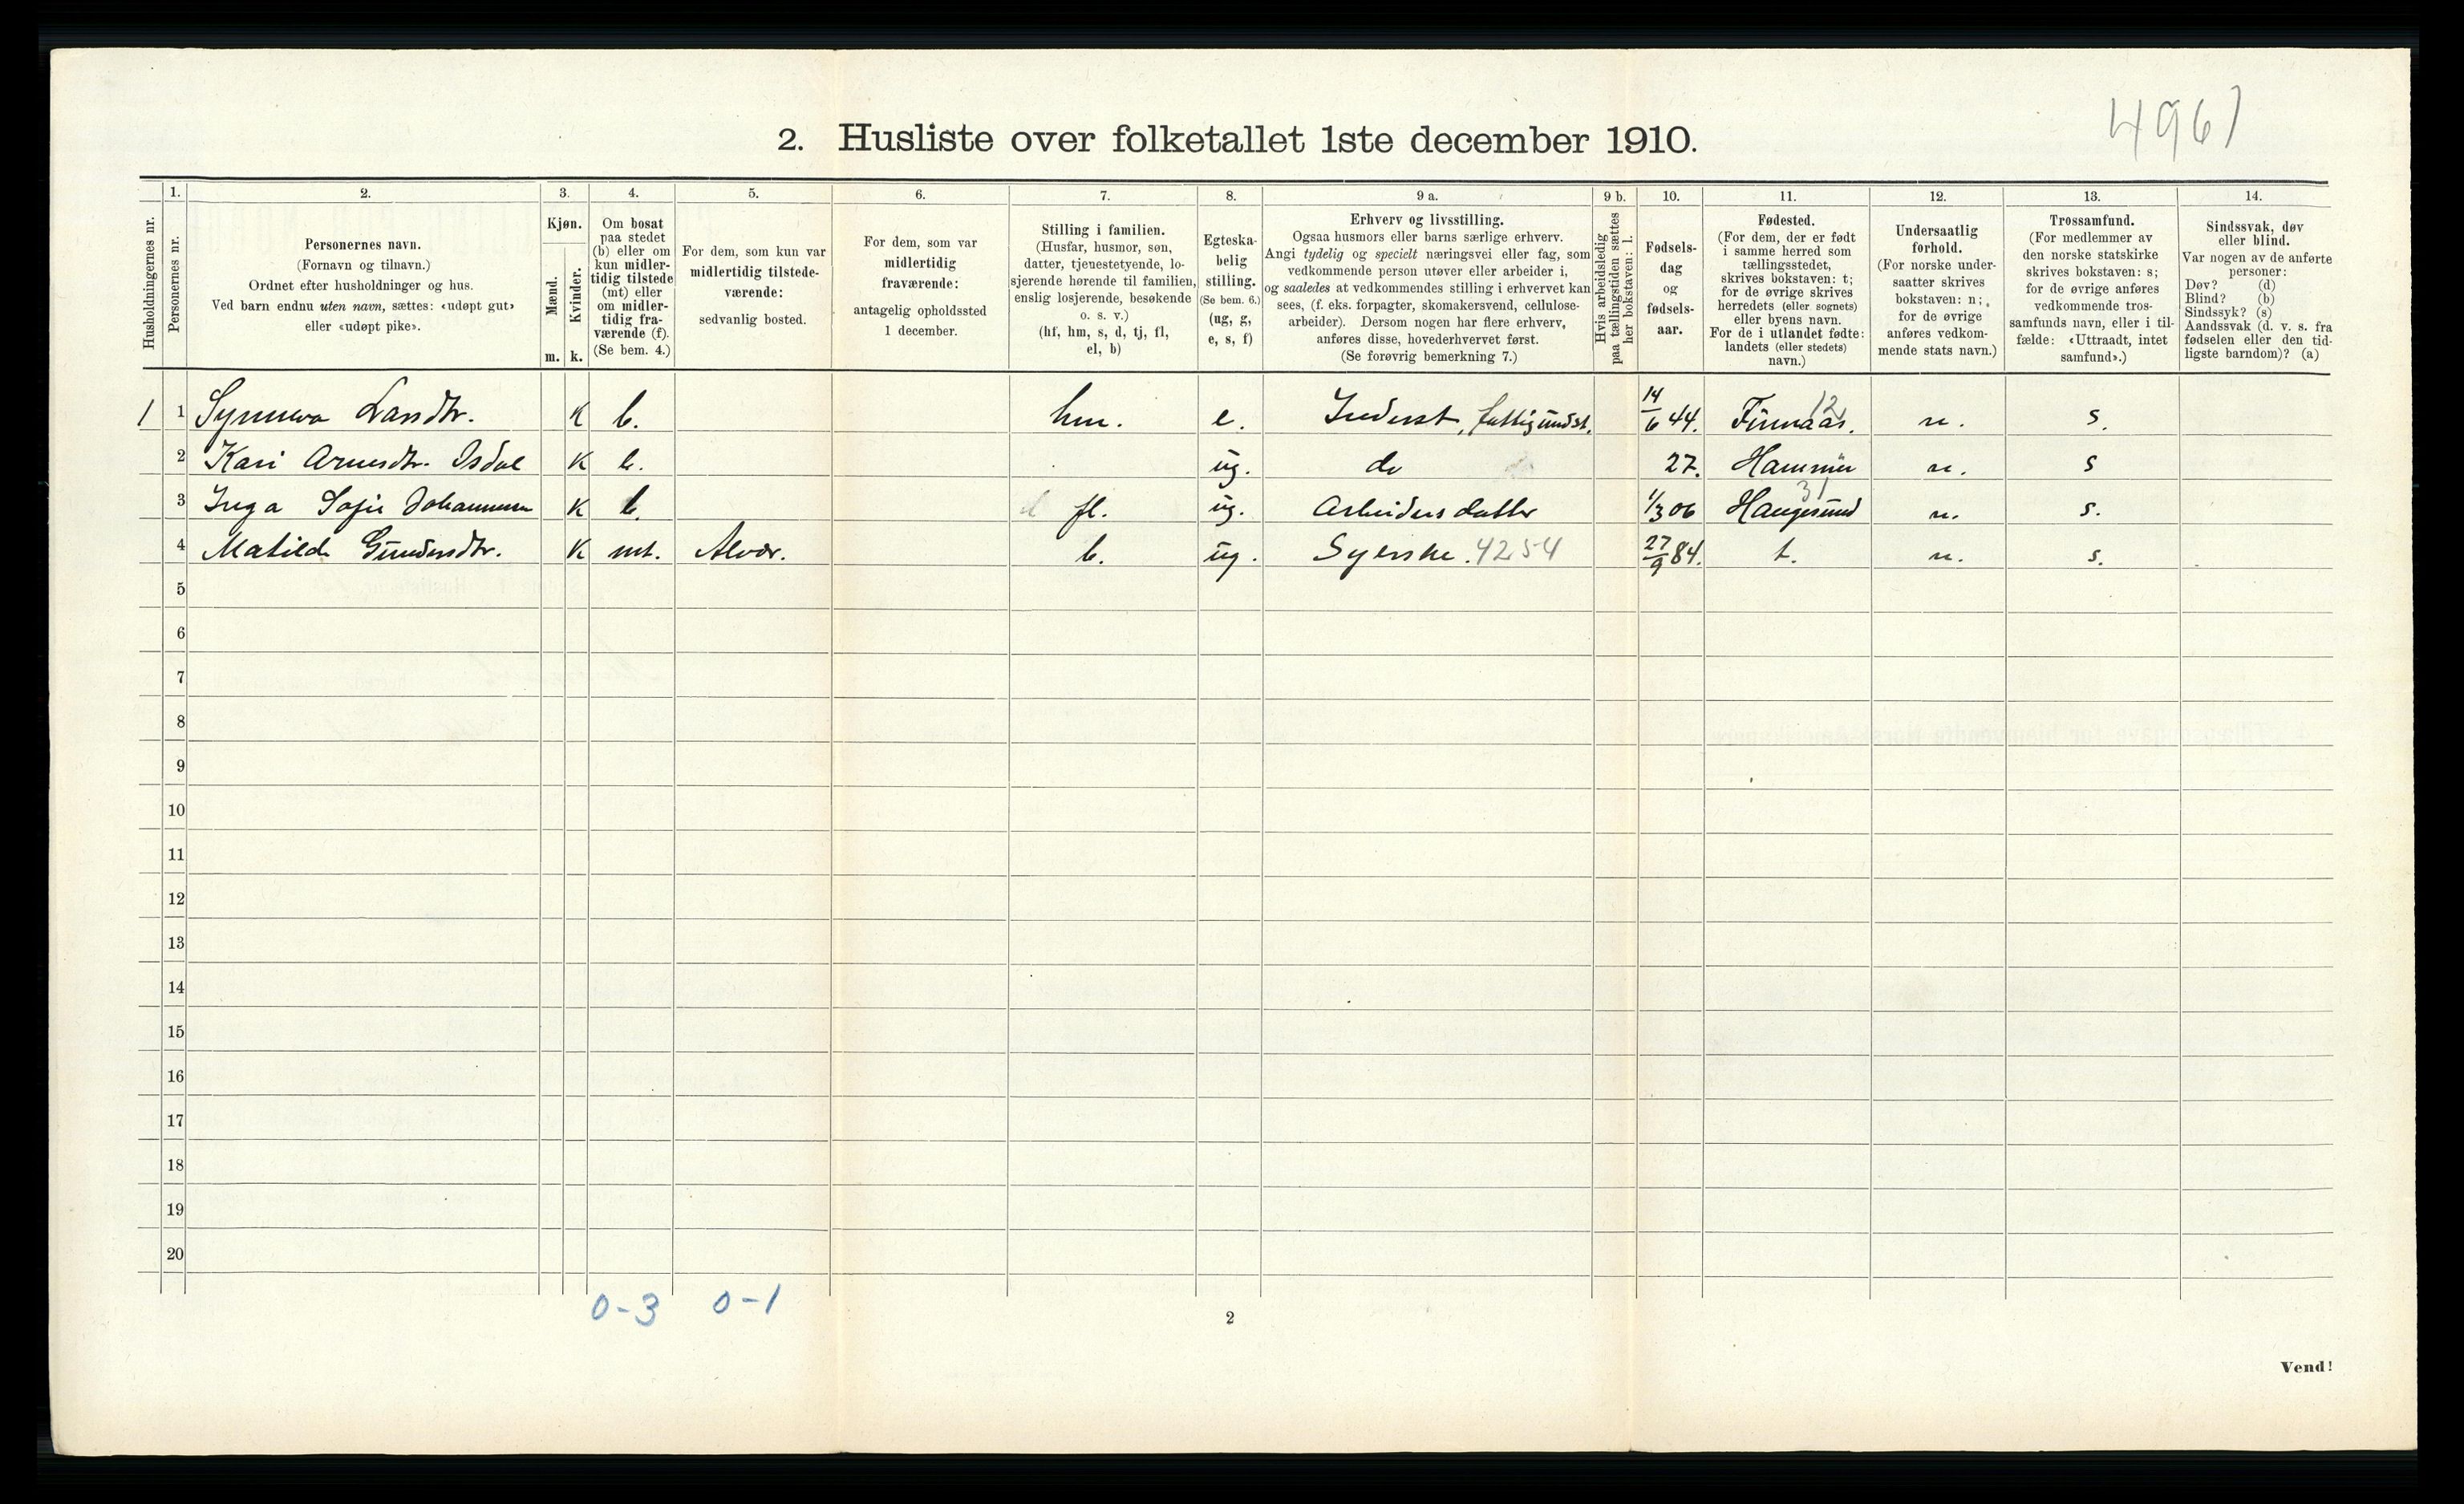 4961
2. Husliste over folketallet 1ste december 1910.
Husholdningernes nr.
1. Personernes nr.
2. Personernes navn. (Fornavn og tilnavn.) Ordnet efter husholdninger og hus. Ved barn endnu uten navn, sættes: «udøpt gut» eller «udøpt pike».
3. Kjøn. Mænd. m. Kvinder. k.
4. Om bosat paa stedet (b) eller om kun midlertidig tilstede (mt) eller om midlertidig fraværende (f). (Se bem. 4.)
5. For dem, som kun var midlertidig tilstedeværende: sedvanlig bosted.
6. For dem, som var midlertidig fraværende: antagelig opholdssted 1 december.
7. Stilling i familien. (Husfar, husmor, søn, datter, tjenestetyende, losjerende hørende til familien, enslig losjerende, besøkende o. s. v.) (hf, hm, s, d, tj, fl, el, b)
8. Egteskabelig stilling. (Se bem. 6.) (ug, g, e, s, f)
9 a. Erhverv og livsstilling. Ogsaa husmors eller barns særlige erhverv. Angi tydelig og specielt næringsvei eller fag, som vedkommende person utøver eller arbeider i, og saaledes at vedkommendes stilling i erhvervet kan sees, (f. eks. forpagter, skomakersvend, cellulosearbeider). Dersom nogen har flere erhverv, anføres disse, hovederhvervet først. (Se forøvrig bemerkning 7.)
9 b. Hvis arbeidsledig paa tællingstiden sættes her bokstaven: l.
10. Fødselsdag og fødselsaar.
11. Fødested. (For dem, der er født i samme herred som tællingsstedet, skrives bokstaven: t; for de øvrige skrives herredets (eller sognets) eller byens navn. For de i utlandet fødte: landets (eller stedets) navn.)
12. Undersaatlig forhold. (For norske undersaatter skrives bokstaven: n; for de øvrige anføres vedkommende stats navn.)
13. Trossamfund. (For medlemmer av den norske statskirke skrives bokstaven: s; for de øvrige anføres vedkommende trossamfunds navn, eller i tilfælde: «Uttraadt, intet samfund».)
14. Sindssvak, døv eller blind. Var nogen av de anførte personer: Døv? (d) Blind? (b) Sindssyk? (s) Aandssvak (d. v. s. fra fødselen eller den tidligste barndom)? (a)
1 1 Synneva Larsdtr. K b. hm. e. Inderst, fattigundst. 14/6 44. Finnaas. 12 n. s.
2 Kari Arnesdtr. Isdal K b. ug. do 27. Hammer n. s
3 Inga Sofie Johannesen K b. fl. ug. Arbeidersdatter 1/3 06 Haugesund 31 n. s.
4 Matilde Gundersdtr. K mt. Alvær. b. ug. Syerske. 4254 27/9 84. t. n. s.
5
6
7
8
9
10
11
12
13
14
15
16
17
18
19
20
0-3 0-1
2
Vend!